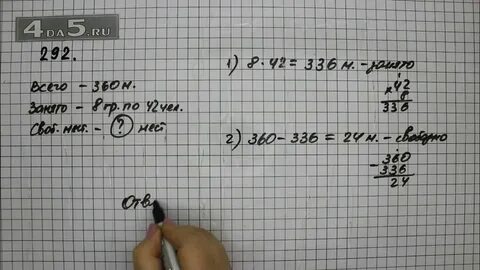 4DA5.RU
292.
Всего – 360 м.
Занято – 8 гр. по 42 чел.
Своб. мест. – ? мест
1) 8 · 42 = 336 м. – занято
× 42
8
336
2) 360 – 336 = 24 м. – свободно
– 360
336
24
Отв